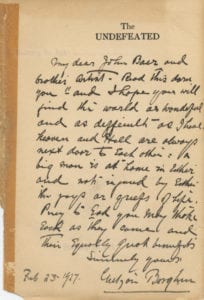 The
UNDEFEATED
My dear John Baer and
brother artist - Read this
you - and I hope you will
find the world as wonderful
and as difficult as I have
Heaven and Hell are always
next door to each other. a
big man is at home in either
and not injured by either
the joys or griefs of life.
Pray to God you may take
Each as they come and
their equally great benefits
Sincerely yours
Gutzon Borglum
Feb 23 - 1917.